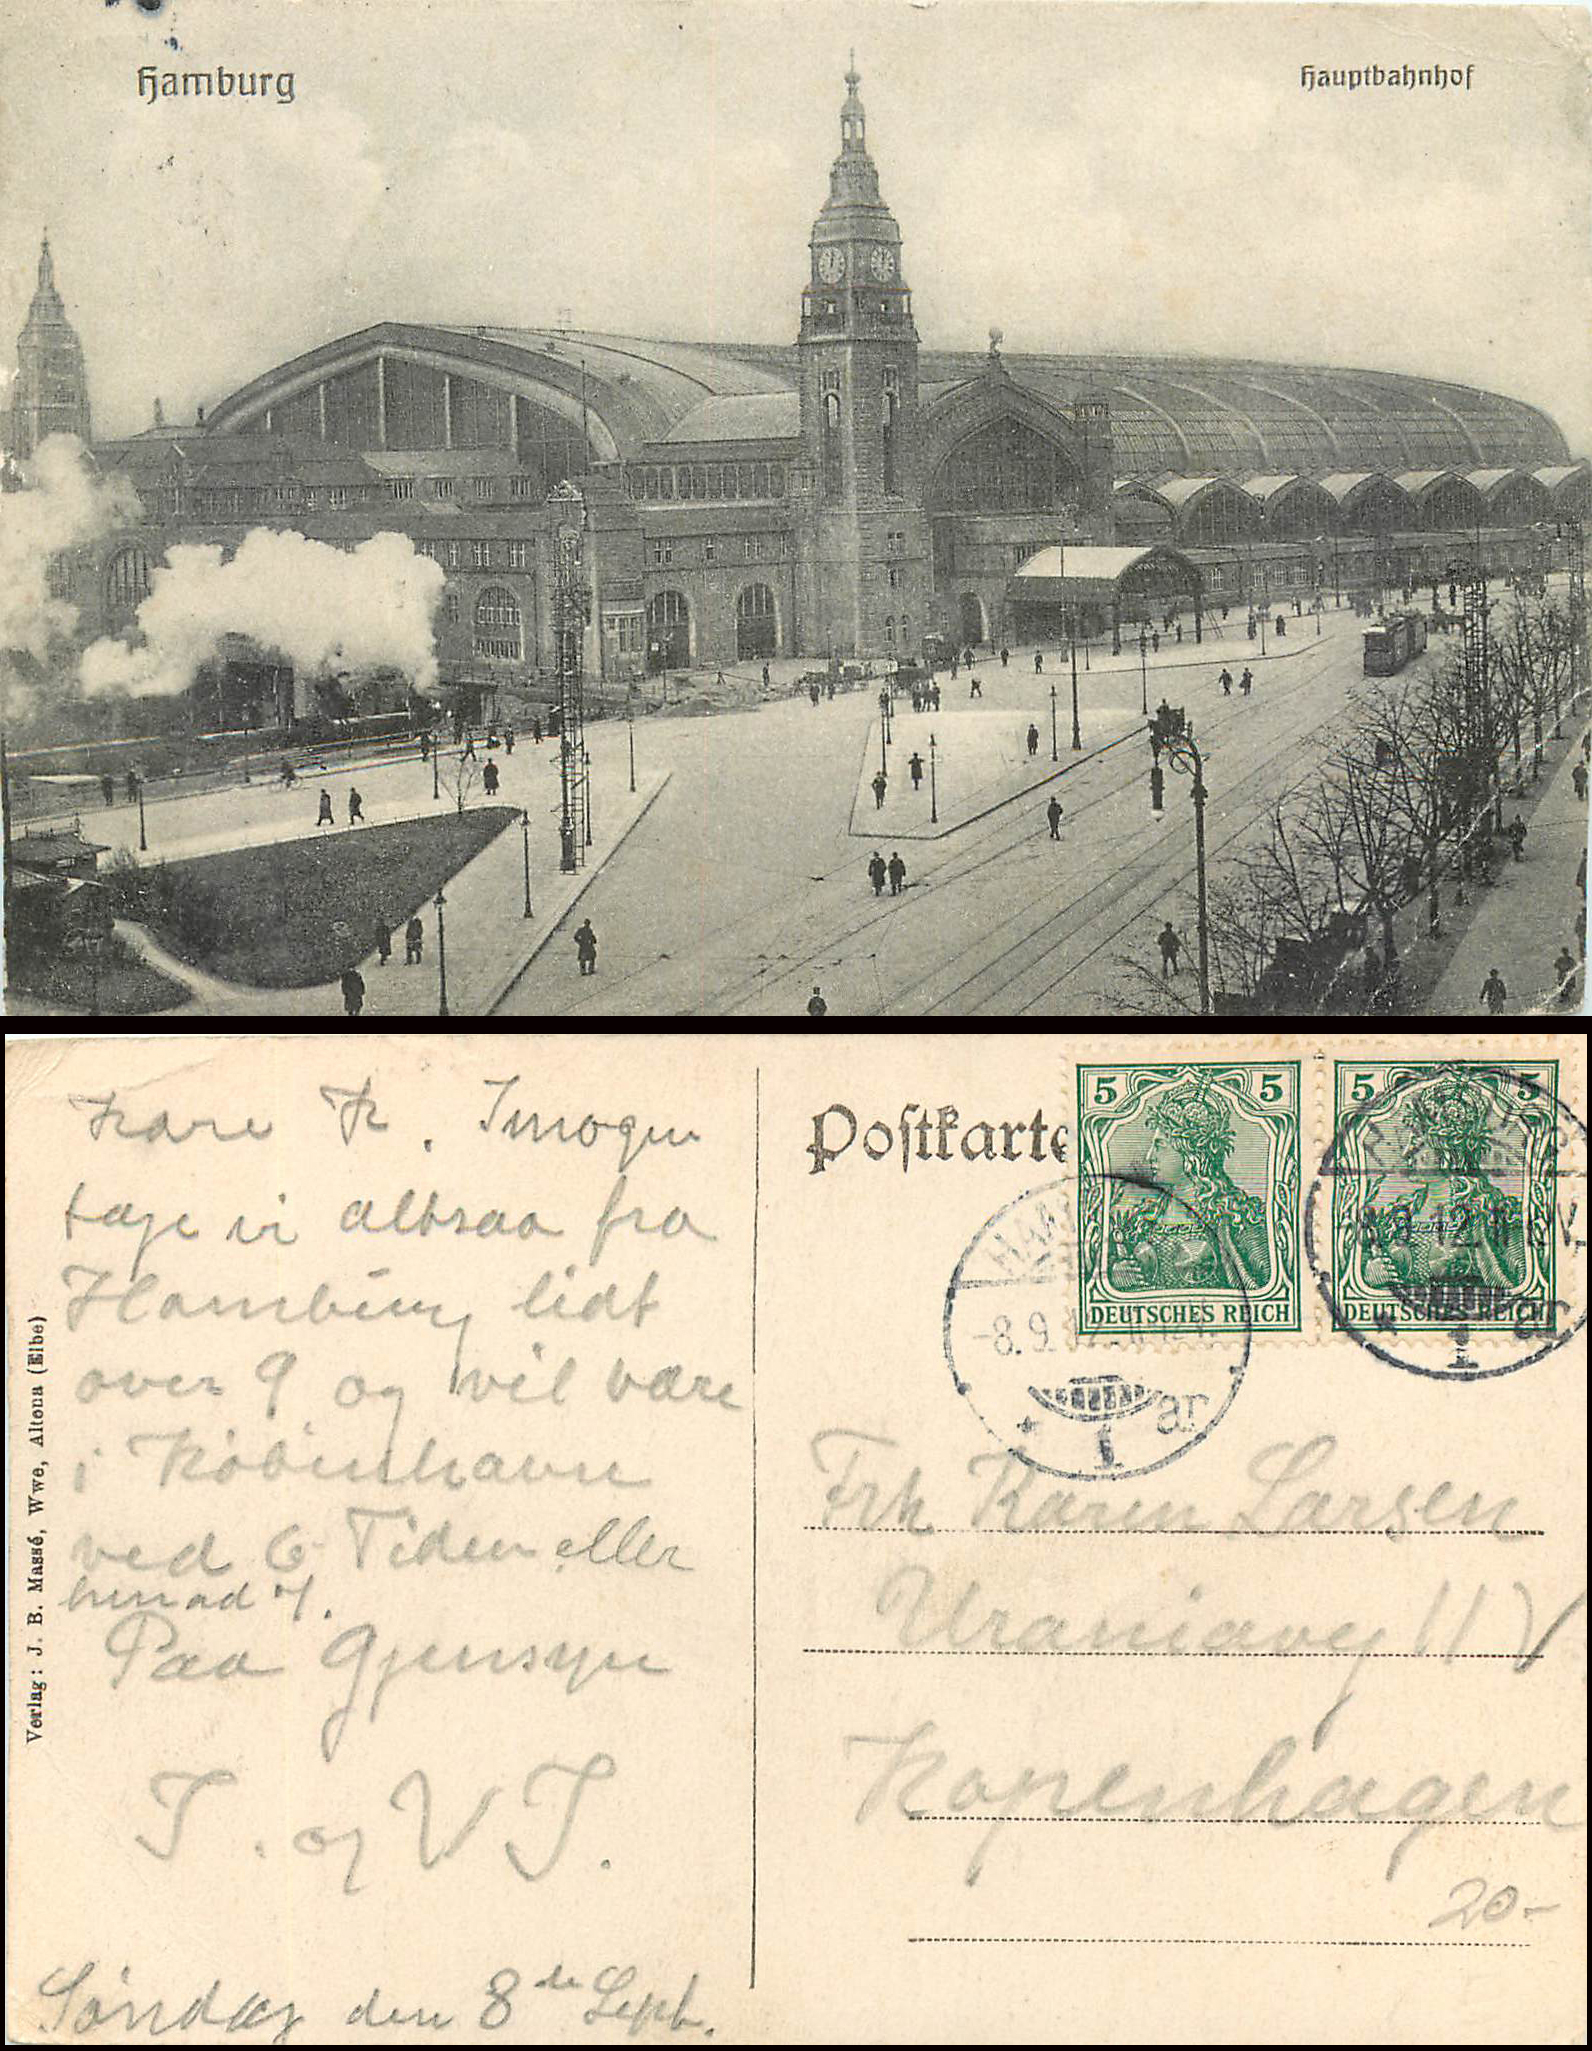 Hamburg
Hauptbahnhof
Kære K. Imogen
tage vi altsaa fra
Hamburg lidt
over 9 og vil være
i Köbenhavn
ved 6 Tiden eller
henad 7.
Paa Gjensyn
J. og V J.
Søndag den 8de Sept.
Verlag: J. B. Massé, Wwe, Altona (Elbe)
Postkarte
5 5
DEUTSCHES REICH
5 5
DEUTSCHES REICH
-8.9.12.
* 1 ar
9.12.
* 1 ar
Frk Karen Larsen
Uraniavej 11 V
Kopenhagen
20-